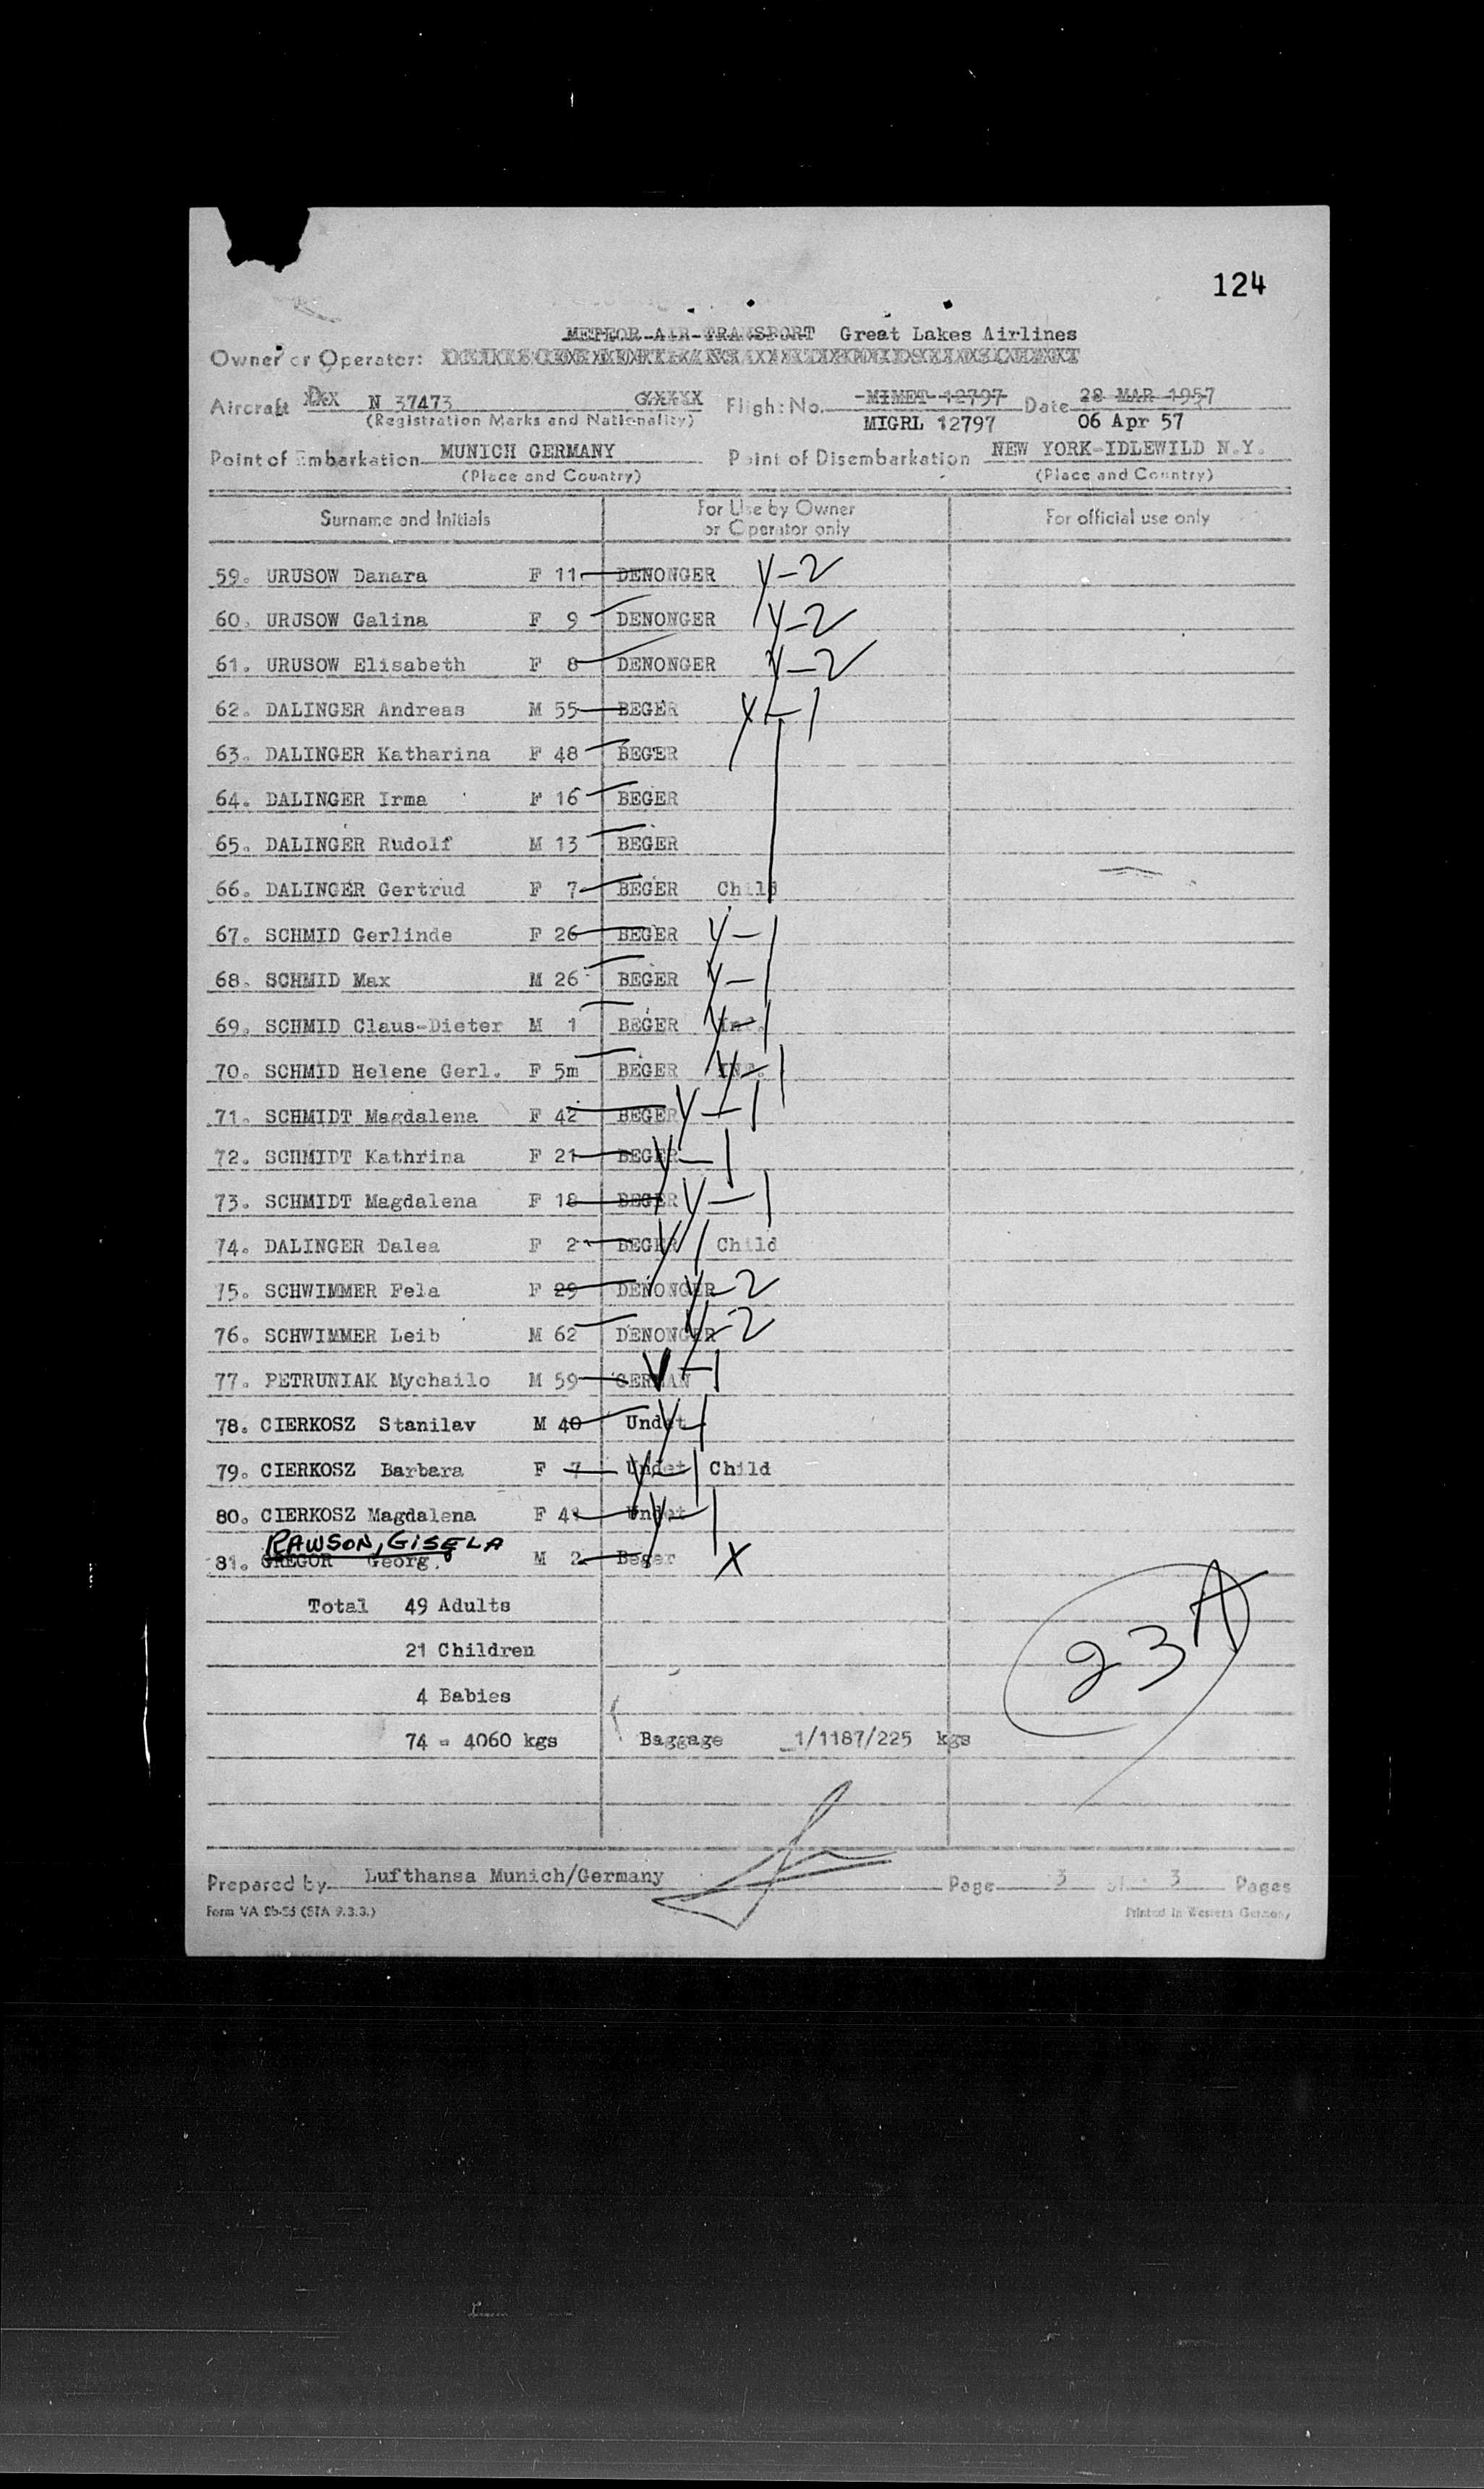 124
METEOR AIR TRANSPORT Great Lakes Airlines
Owner or Operator:
Aircraft N 37473 Flight No. MIMET 12797 Date 28 MAR 1957
(Registration Marks and Nationality) MIGRL 12797 06 Apr 57
Point of Embarkation MUNICH GERMANY Point of Disembarkation NEW YORK-IDLEWILD N.Y.
(Place and Country) (Place and Country)
Surname and Initials For Use by Owner or Operator only For official use only
59. URUSOW Danara F 11 DENONGER Y-2
60. URJSOW Galina F 9 DENONGER Y-2
61. URUSOW Elisabeth F 8 DENONGER Y-2
62. DALINGER Andreas M 55 BEGER Y-1
63. DALINGER Katharina F 48 BEGER
64. DALINGER Irma F 16 BEGER
65. DALINGER Rudolf M 13 BEGER
66. DALINGER Gertrud F 7 BEGER Child
67. SCHMID Gerlinde F 26 BEGER Y-1
68. SCHMID Max M 26 BEGER Y-1
69. SCHMID Claus-Dieter M 1 BEGER Inf. Y-1
70. SCHMID Helene Gerl. F 5m BEGER INF. Y-1
71. SCHMIDT Magdalena F 42 BEGER Y-1
72. SCHMIDT Kathrina F 21 BEGER Y-1
73. SCHMIDT Magdalena F 18 BEGER Y-1
74. DALINGER Dalea F 2 BEGER Y-1 Child
75. SCHWIMMER Fela F 29 DENONGER Y-2
76. SCHWIMMER Leib M 62 DENONGER Y-2
77. PETRUNIAK Mychailo M 59 GERMAN Y-1
78. CIERKOSZ Stanilav M 40 Undet Y-1
79. CIERKOSZ Barbara F 7 Undet Y-1 Child
80. CIERKOSZ Magdalena F 41 Undet Y-1
RAWSON, GISELA
81. GREGOR Georg. M 2 Beger X
Total 49 Adults
21 Children
4 Babies
74 = 4060 kgs Baggage 1/1187/225 kgs
23 A
Prepared by Lufthansa Munich/Germany Page 3 of 3 Pages
Form VA 2b-55 (STA 9.3.3.) Printed in Western Germany